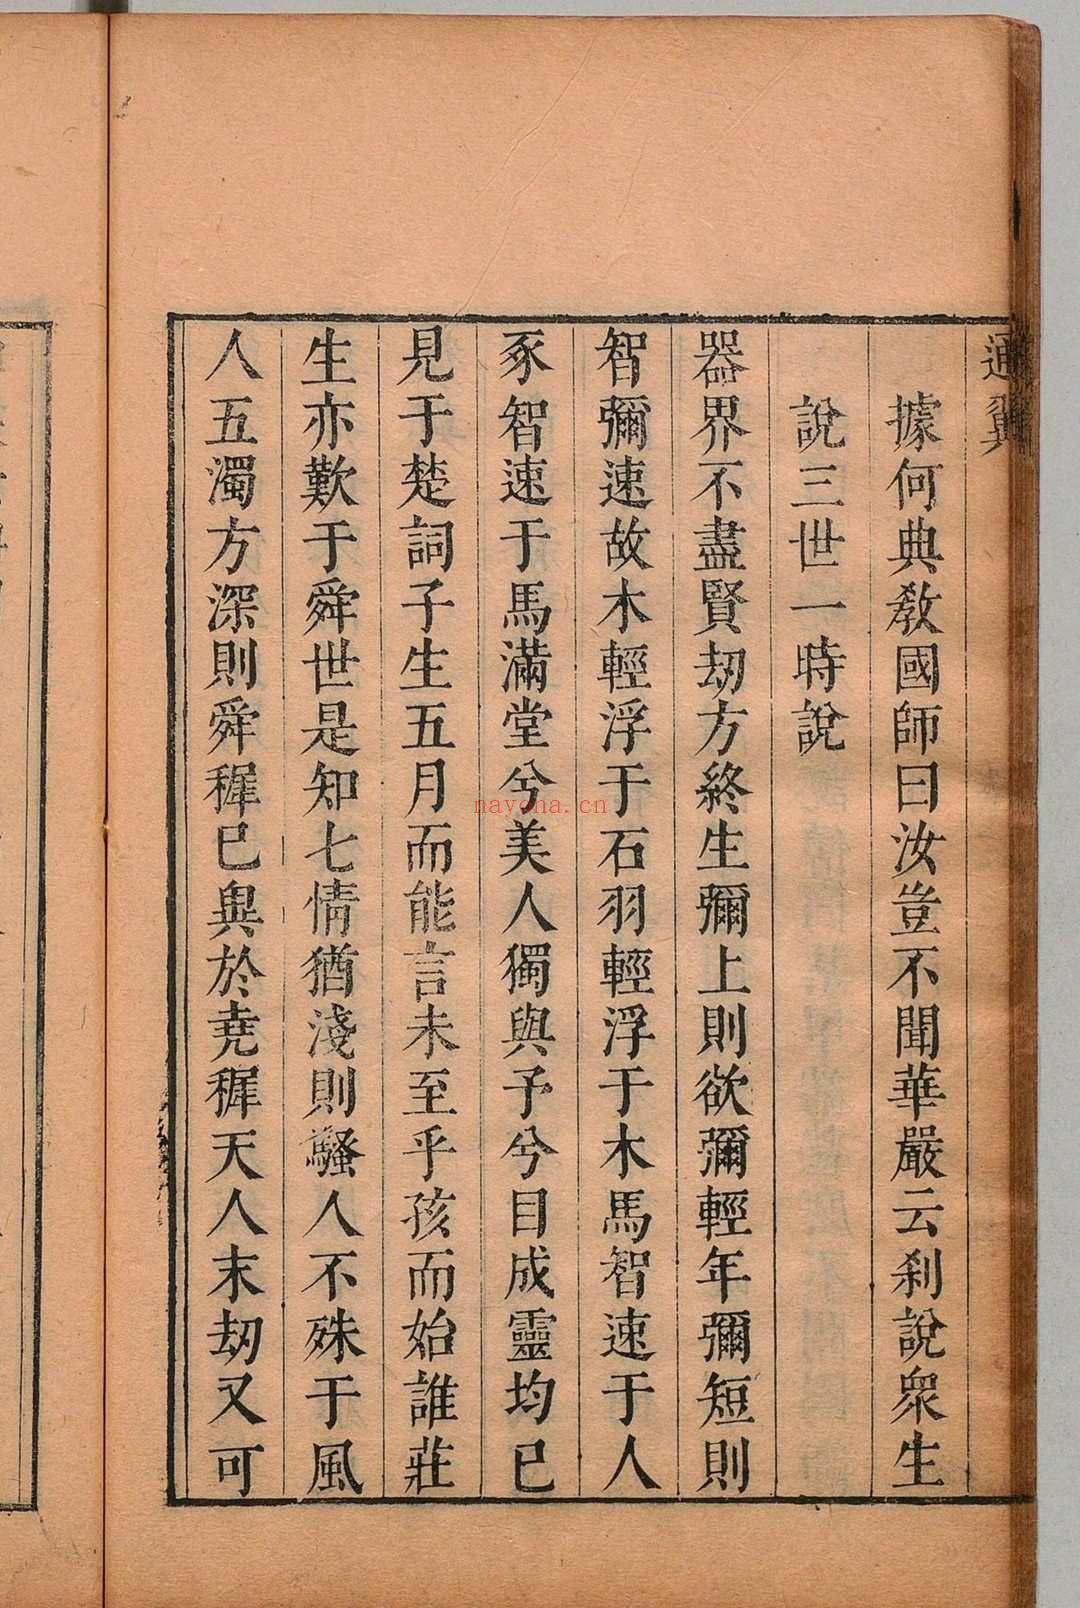 通翼
據何典教國師曰汝豈不聞華嚴云刹說眾生
說三世一時說
器界不盡賢刼方終生彌上則欲彌輕年彌短則
智彌速故木輕浮于石羽輕浮于木馬智速于人
豕智速于馬滿堂兮美人獨與予兮目成靈均已
見于楚詞子生五月而能言未至乎孩而始誰莊
生亦歎于舜世是知七情猶淺則騷人不殊于風
人五濁方深則舜穉已與於堯穉天人末刼又可
nayona.cn